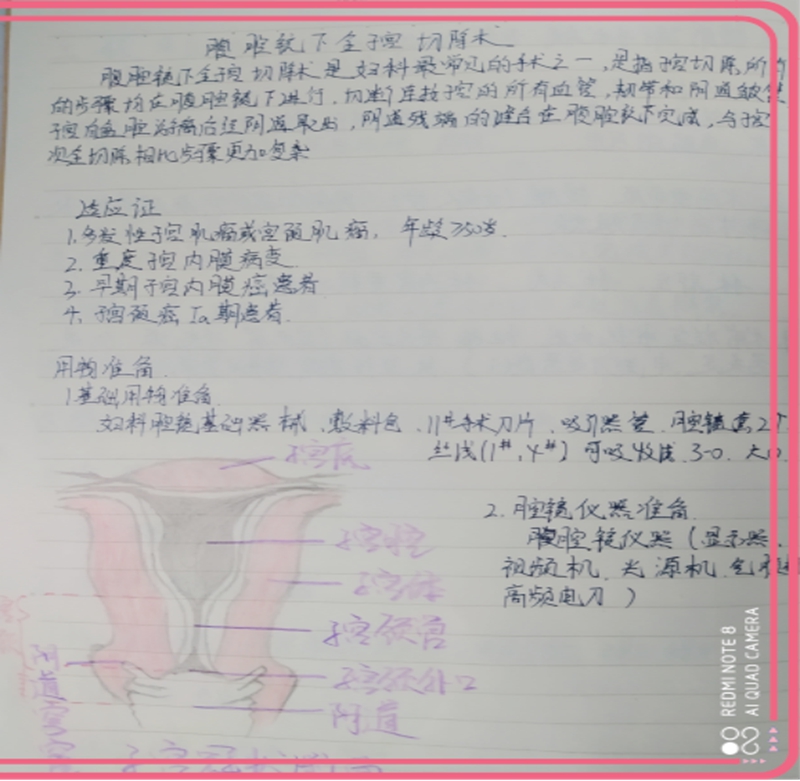 腹腔镜下全子宫切除术
腹腔镜下全子宫切除术是妇科最常见的手术之一，是指子宫切除所
的步骤均在腹腔镜下进行，切断连接子宫的所有血管，韧带和阴道
子宫后经阴道取出，阴道残端的缝合在腹腔镜下完成，与子宫
次全切除相比步骤更加复杂
适应证
1.多发性子宫肌瘤或宫颈肌瘤，年龄≥50岁.
2.重度子宫内膜病变
3.早期子宫内膜癌患者
4.子宫颈癌Ia期患者.
用物准备
1基础用物准备
妇科腔镜基础器械、敷料包、11#手术刀片、吸引器管、腔镜套2个
丝线(1#、4#)可吸收线.3-0.
子宫底
2.腔镜仪器准备
子宫腔
腹腔镜仪器(显示器、
子宫体
视频机、光源机、
高频电刀)
子宫颈管
子宫颈外口
阴道
阴道穹窿
子宫冠状剖面
REDMI NOTE 8
AI QUAD CAMERA